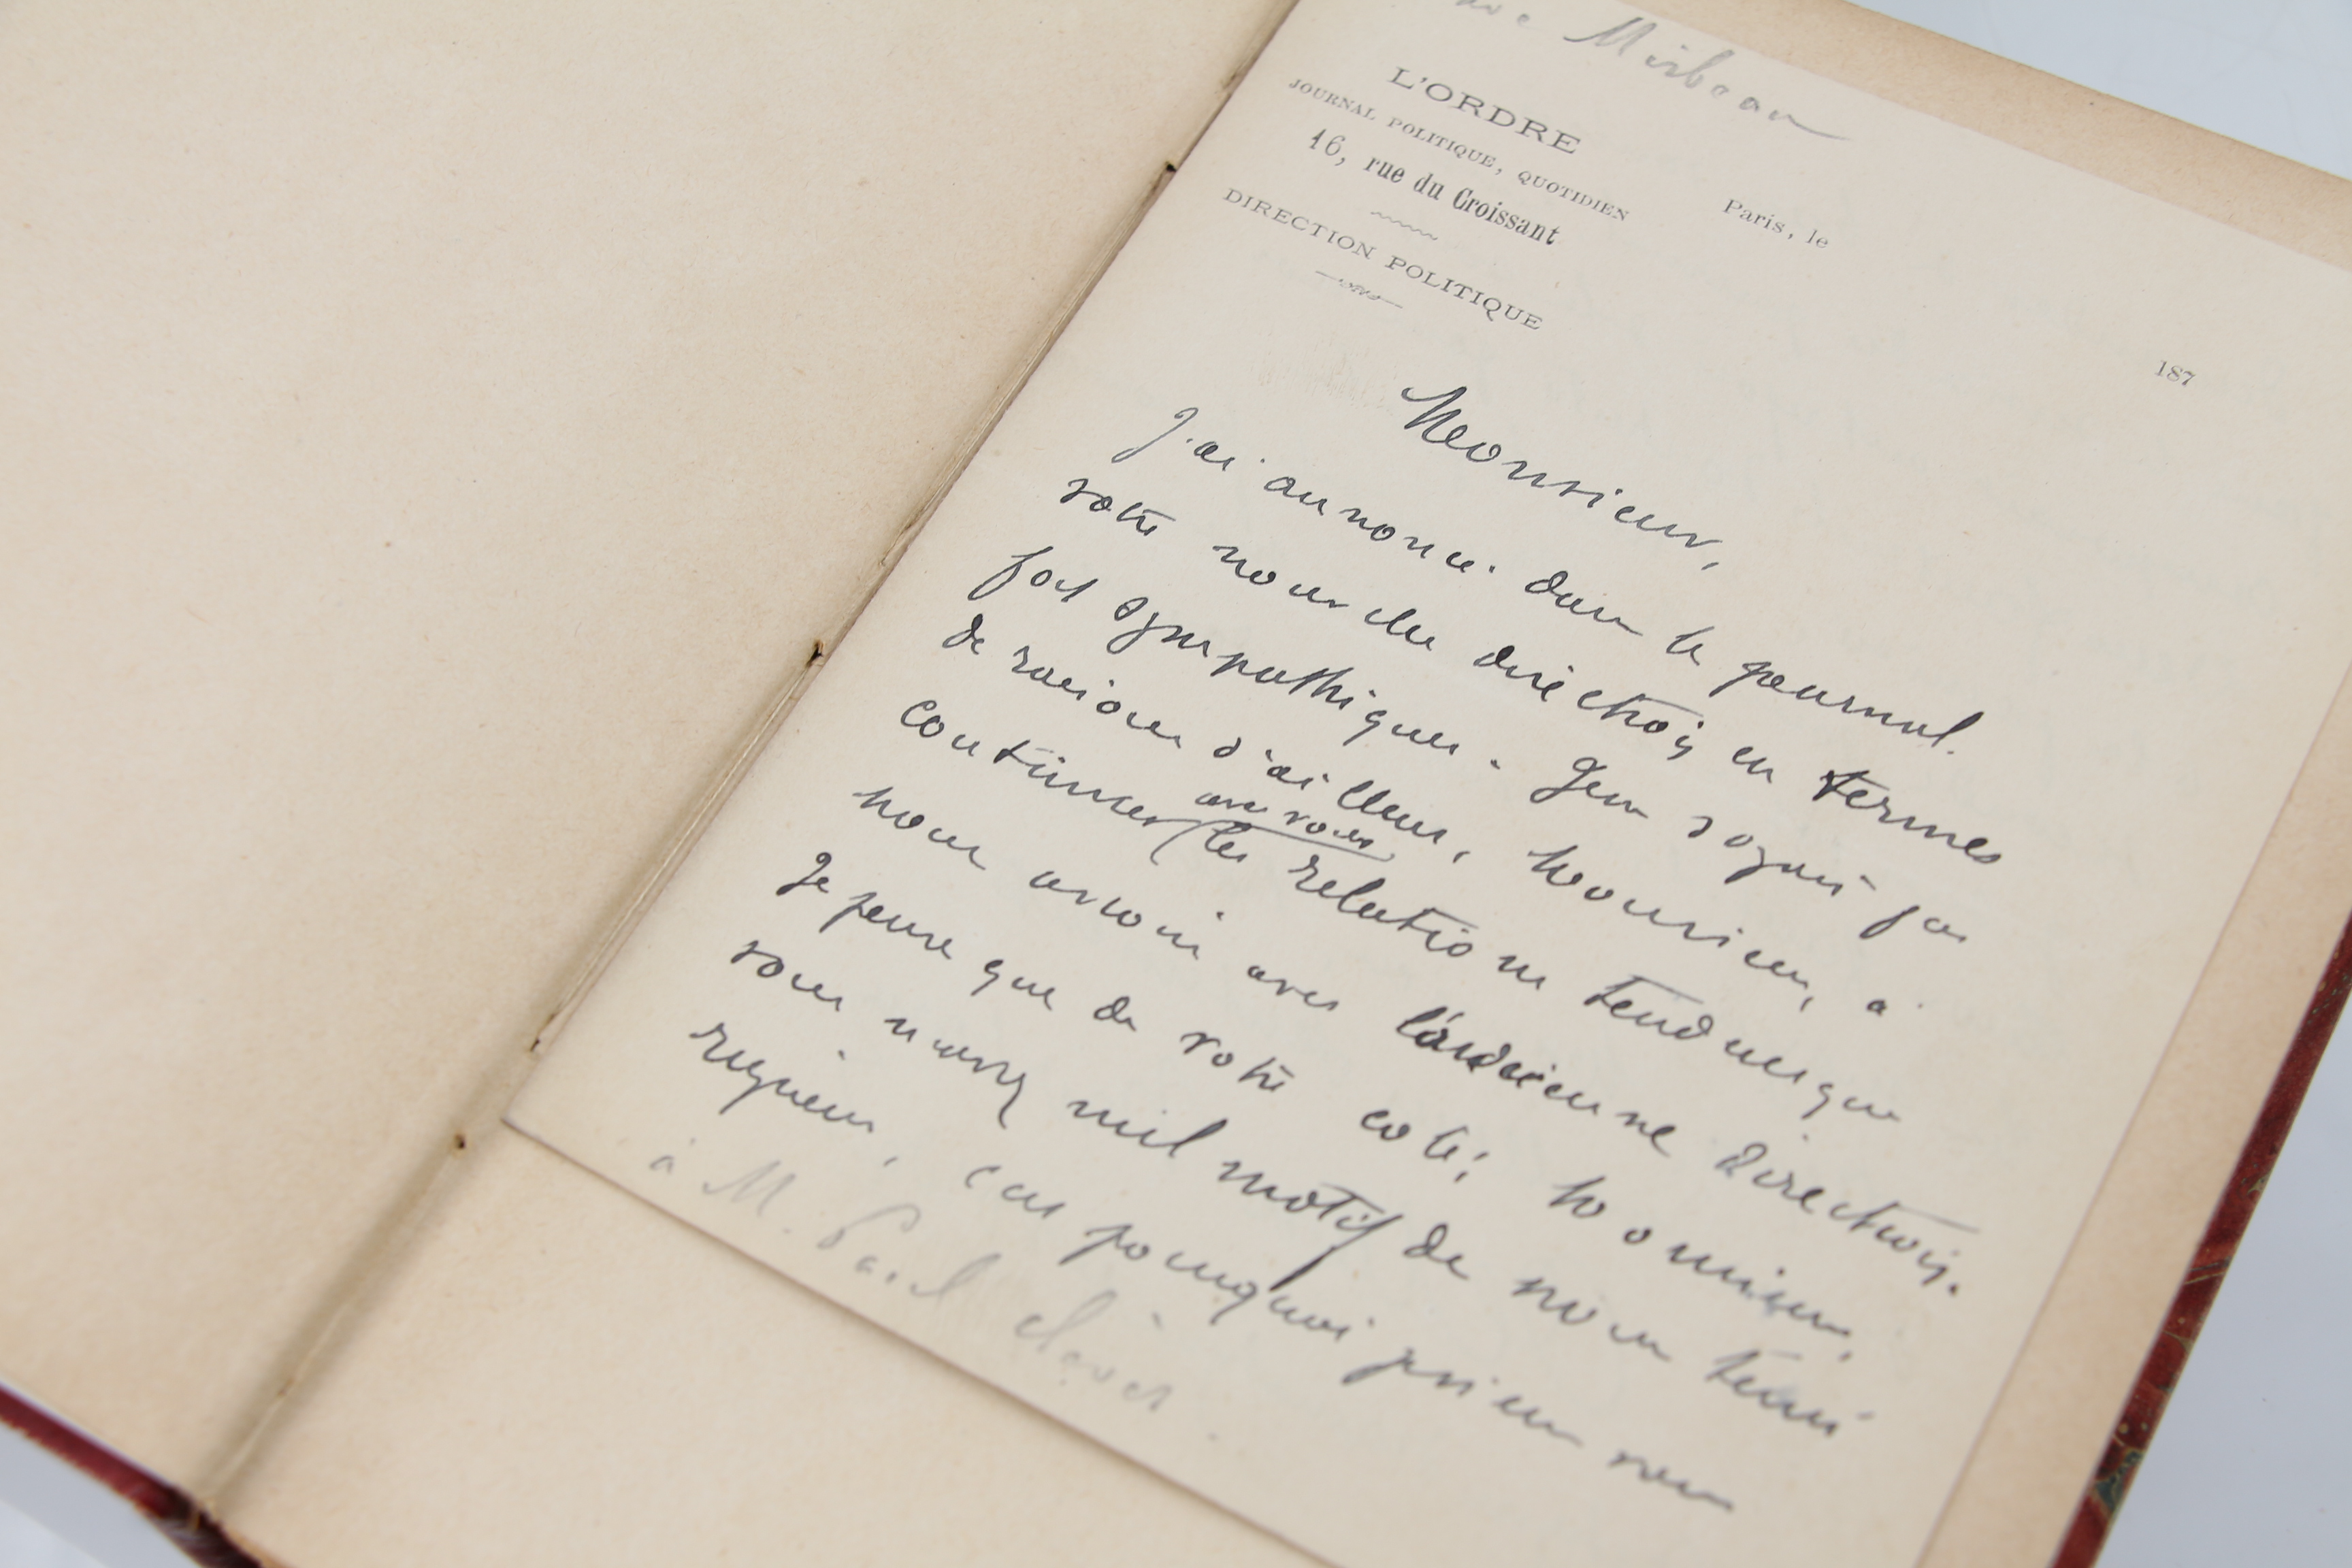 Mirbeau
L'ORDRE
JOURNAL POLITIQUE, QUOTIDIEN
16, rue du Croissant
DIRECTION POLITIQUE
Paris, le
187
Monsieur,
J'ai annoncé dans le journal
votre nouvelle direction en termes
fort sympathiques. Je ne voyais pas
de raisons d'ailleurs, Monsieur, à
continuer avec vous les relations tendues que
nous avions avec l'ancienne direction.
Je pense que de votre coté, Monsieur,
vous n'avez nul motif de nous tenir
rigueur, car pourquoi priver vos
à M. Paul Clèves